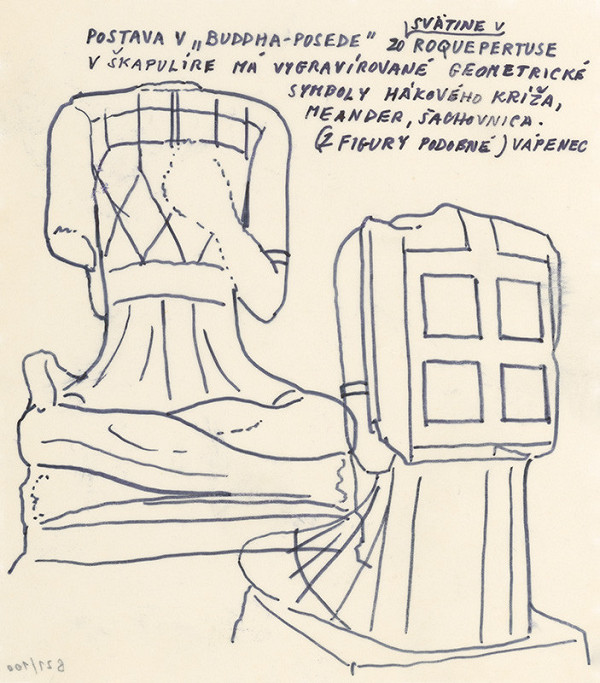 SVÄTINE V
POSTAVA V „BUDDHA-POSEDE" ZO ROQUEPERTUSE
V ŠKAPULÍRE MÁ VYGRAVÍROVANÉ GEOMETRICKÉ
SYMBOLY HÁKOVÉHO KRÍŽA,
MEANDER, ŠACHOVNICA.
(2 FIGURY PODOBNÉ) VÁPENEC